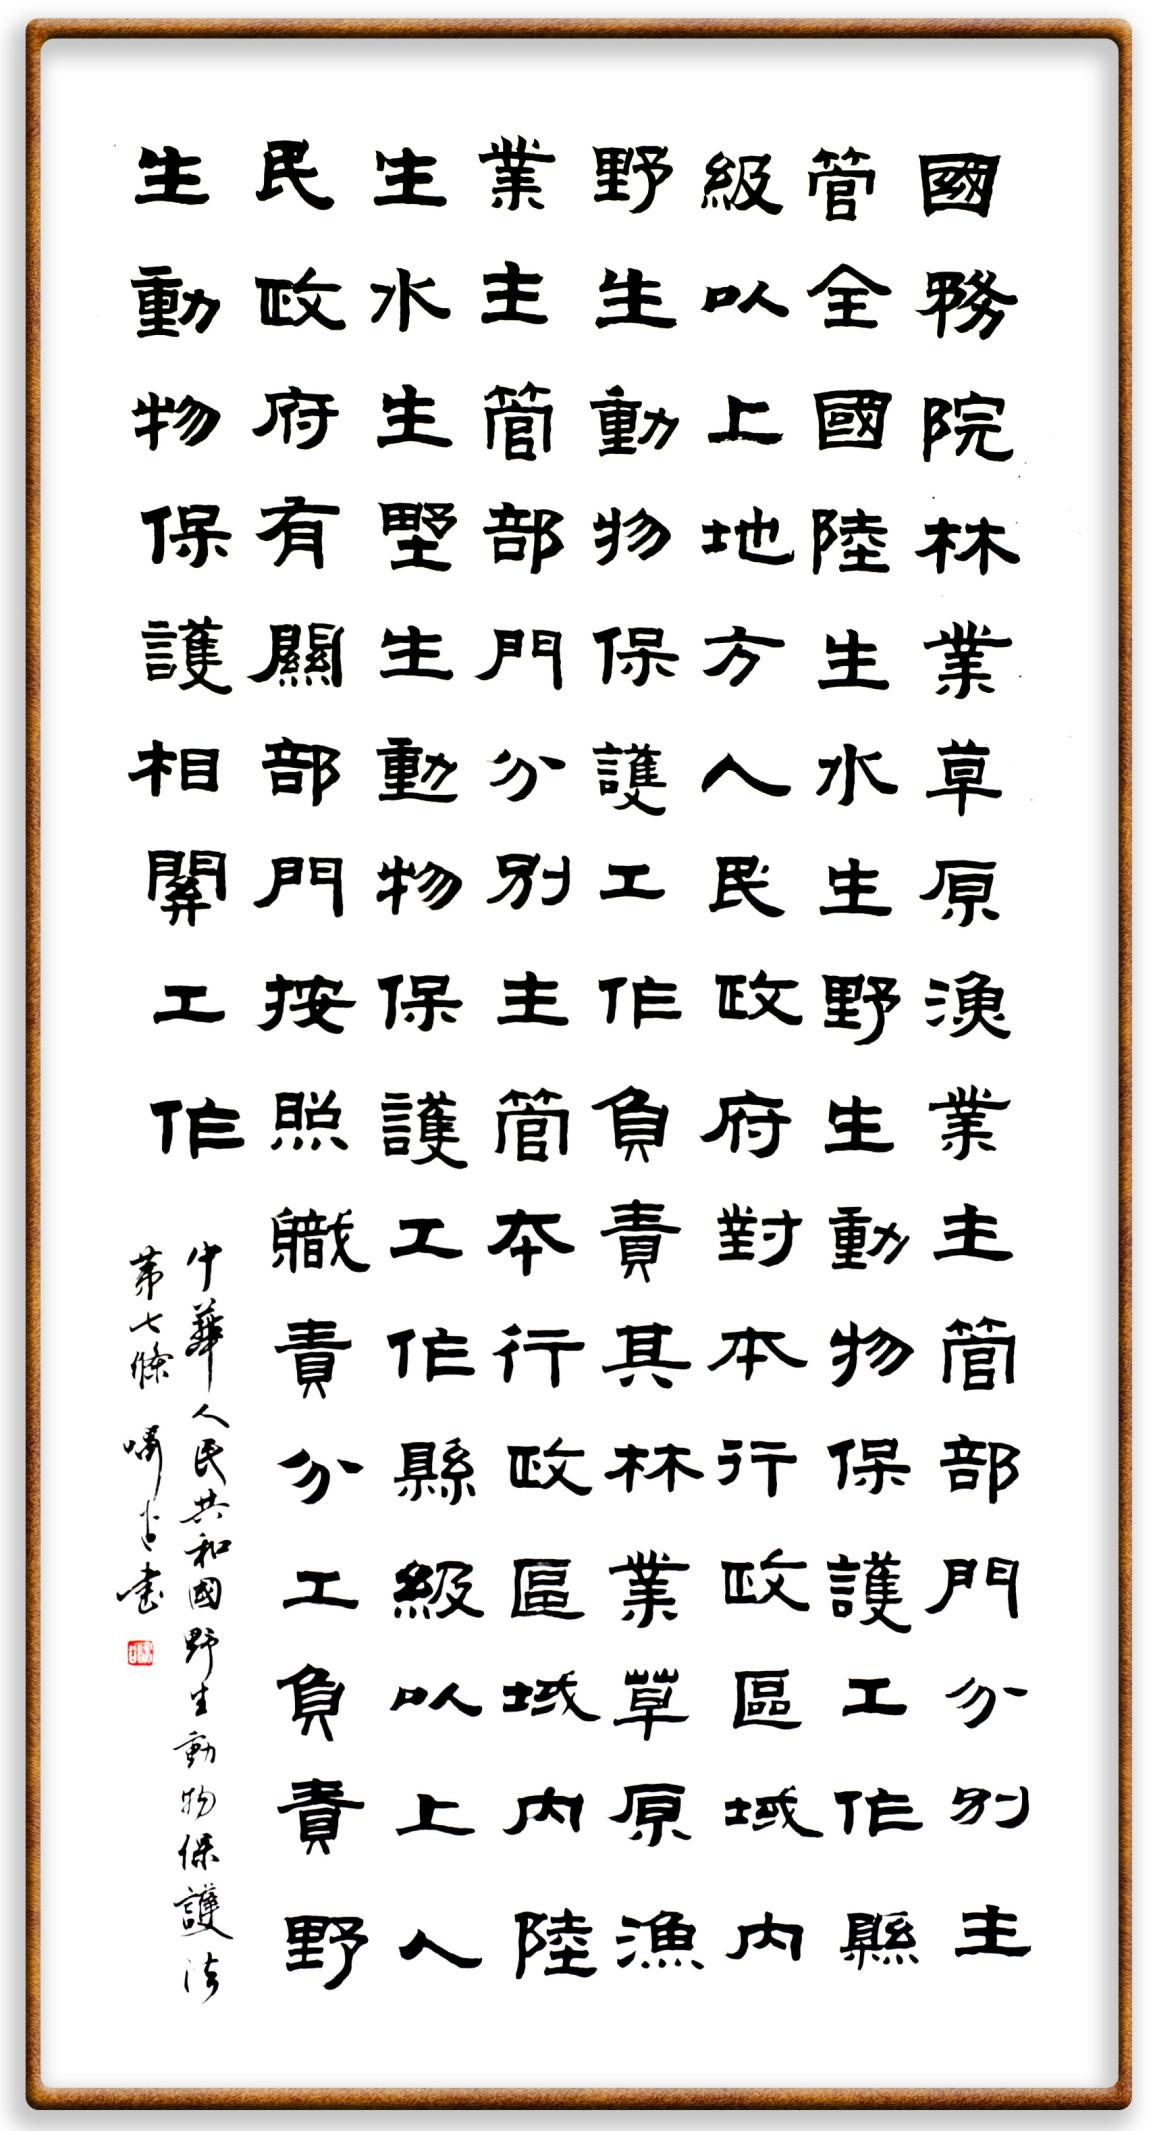 國務院林業草原漁業主管部門分別主
管全國陸生水生野生動物保護工作縣
級以上地方人民政府對本行政區域内
野生動物保護工作負責其林業草原漁
業主管部門分別主管本行政區域内陸
生水生野生動物保護工作縣級以上人
民政府有關部門按照職責分工負責野
生動物保護相關工作
中華人民共和國野生動物保護法
第七條 書